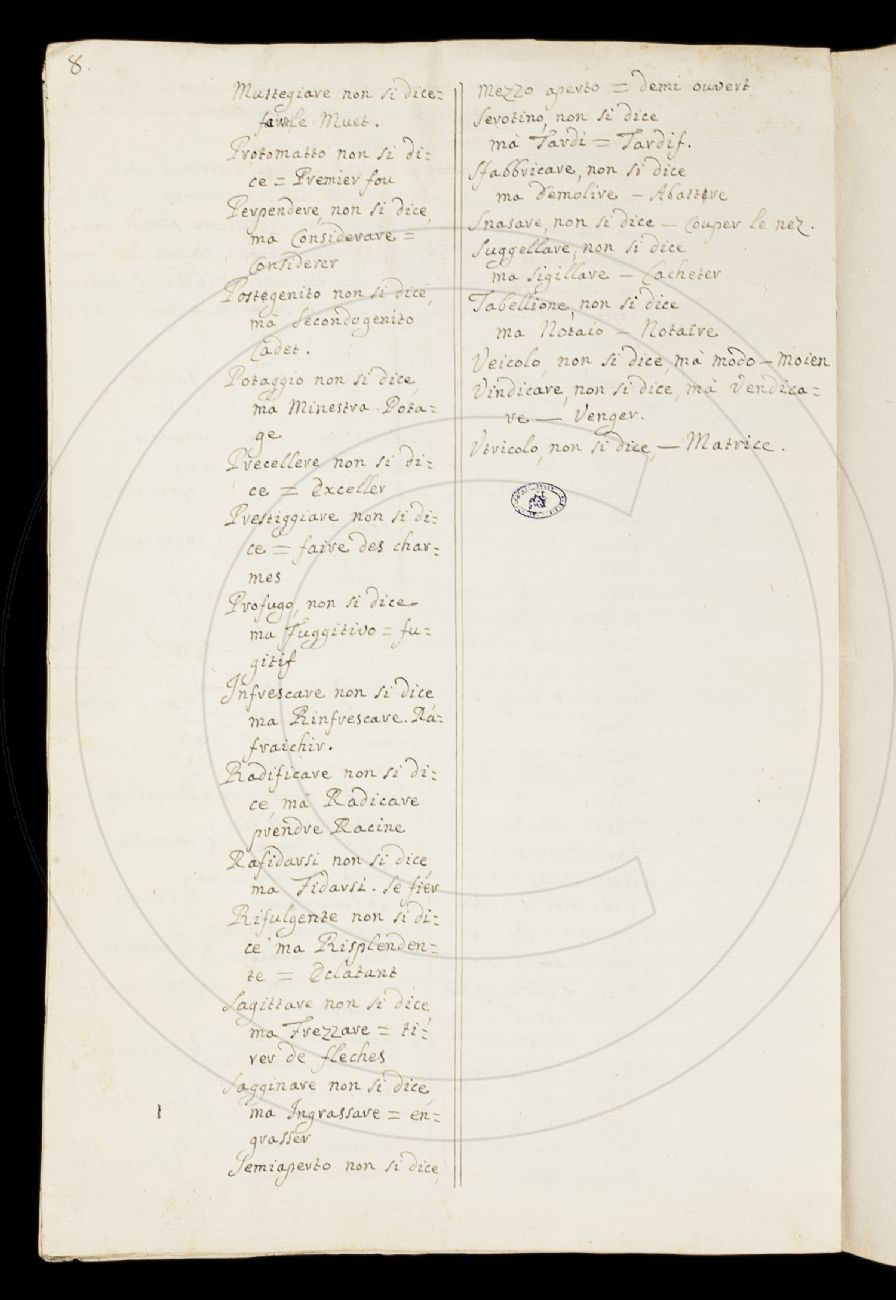 8.
Muttegiare non si dice=
faire le Muet.
Protomatto non si di=
ce = Premier fou
Perpendere, non si dice,
ma Considerare =
Considerer
Postegenito non si dice,
mà Secondogenito
Cadet.
Potaggio non si dice
ma Minestra. Pota=
ge
Precellere non si di=
ce = Exceller
Prestiggiare non si di=
ce = faire des char=
mes
Profugo, non si dice
ma Fuggitivo = fu=
gitif
Infrescare non si dice
ma Rinfrescare. Ra=
fraichir.
Radificare non si di=
ce, mà Radicare
prendre Racine
Rafidarsi non si dice
ma Fidarsi. Se fier
Rifulgente non si di=
ce ma Risplenden=
te = Eclatant
Sagittare non si dice
ma Frezzare = ti=
rer de fleches
Sagginare non si dice
ma Ingrassare = en=
grasser
Semiaperto non si dice,
mezzo aperto = demi ouvert
Serotino, non si dice
mà Tardi = Tardif.
Sfabbricare, non si dice
ma Demolire – Abattre
Snasare, non si dice – Couper le nez.
Suggellare, non si dice
ma Sigillare – Cacheter
Tabellione, non si dice
ma Notaio – Notaire
Veicolo, non si dice, mà modo – Moien
Vindicare, non si dice, mà Vendica=
re — Venger.
Utricolo, non si dice, – Matrice.